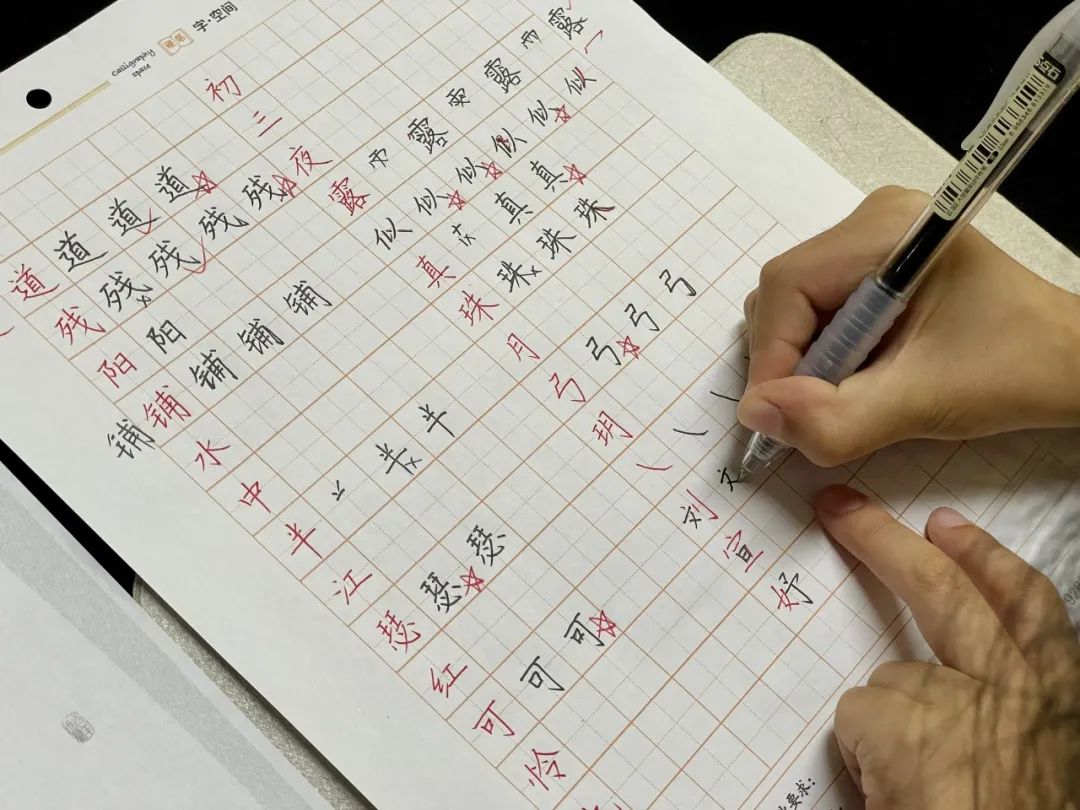 Calligraphy
space
字·空间
初
道道道道三
残残残残残夜
阳阳露露露露
铺铺铺铺铺似似似似似似
水真真真
中珠珠珠珠
半半半月
江弓弓弓弓
瑟瑟瑟玥
红
可可可刘
怜宣
妤
要求：